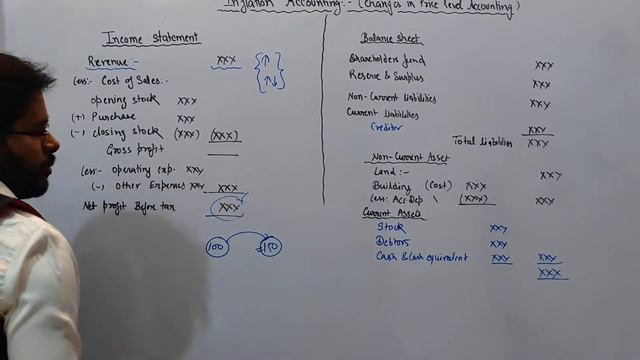 Inflation Accounting :- (Changes in Price level Accounting)
Income statement
Revenue :- XXX {↑}
Less:- Cost of Sales:- {↑↓}
opening stock XXX
(+) Purchase XXX
(-) closing stock (XXX) (XXX)
Gross profit
Less:- operating exp. XXY
(-) other Expenses XXY XXX
Net profit Before tax XXX
100 150
Balance sheet
Shareholders fund XXY
Reserve & Surplus XXY
Non-Current liabilities XXY
Current liabilities
Creditor XXY
Total liabilities XXY
Non-Current Asset
Land :- XXY
Building (Cost) XXX
Less: Acc Dep (XXX) XXX
Current Assets
Stock XXY
Debtors XXY
Cash & Cash equivalent XXY XXY
XXX